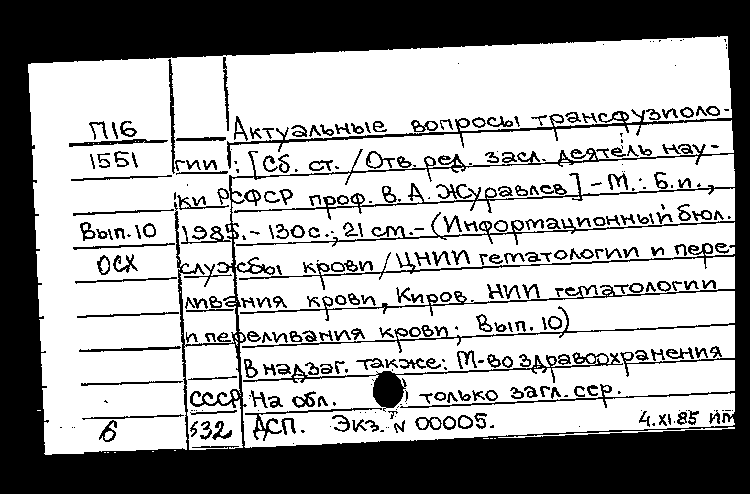 П16 Актуальные вопросы трансфузиоло-
1551 гии : [Сб. ст. / Отв. ред. засл. деятель нау-
ки РСФСР проф. В. А. Журавлев] - М. : Б.и.,
Вып. 10 1985. - 130 с.; 21 см. - (Информационный бюл.
ОСХ службы крови / ЦНИИ гематологии и пере-
ливания крови, Киров. НИИ гематологии
и переливания крови; Вып. 10)
В надзаг. также: М-во здравоохранения
СССР. На обл. только загл. сер.
6 532 ДСП. Экз. N 00005. 4.XI.85 ИМ